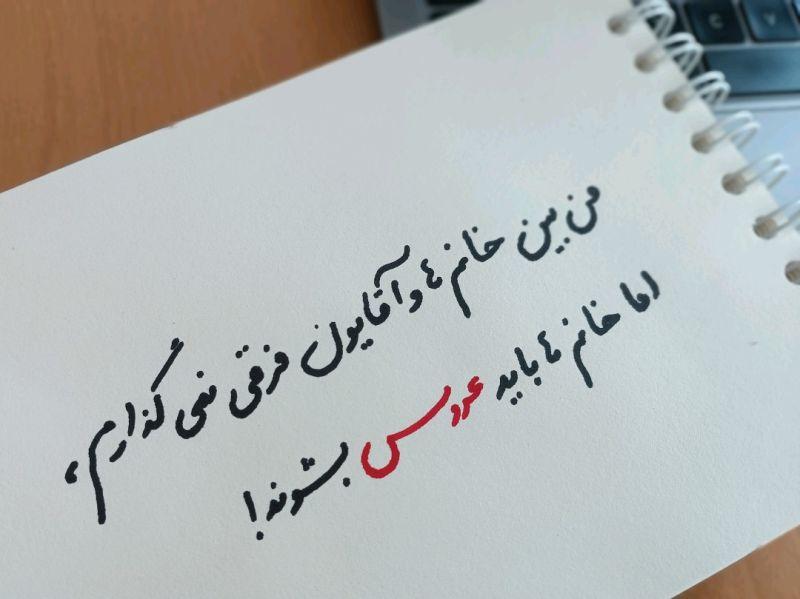 من بین خانم ها و آقایون فرقی نمی گذارم،
اما خانم ها باید عروس بشوند!